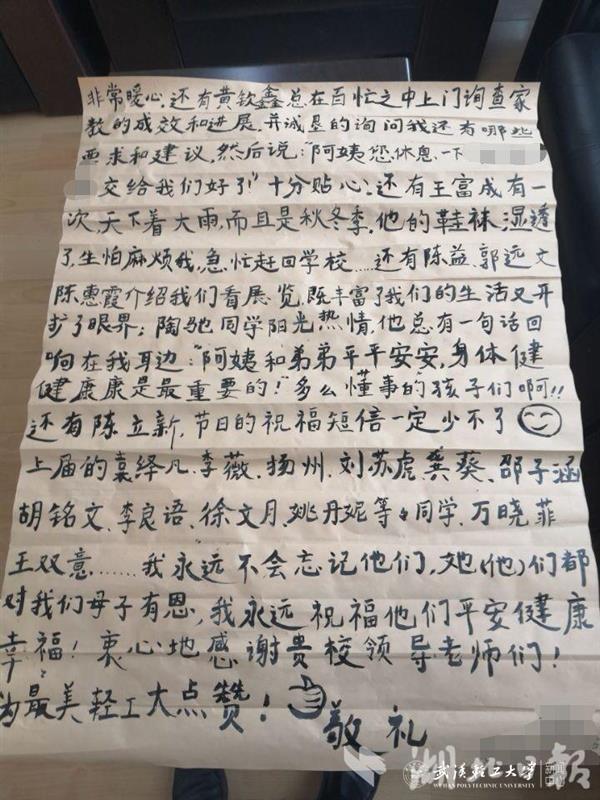 非常暖心,还有黄钦鑫总在百忙之中上门询查家
教的成效和进展,并诚恳的询问我还有哪些
要求和建议,然后说:"阿姨您休息一下
交给我们好了!"十分贴心;还有王富成有一
次,天下着大雨,而且是秋冬季,他的鞋袜湿透
了,生怕麻烦我,急忙赶回学校……还有陈益、郭远文
陈惠霞介绍我们看展览,既丰富了我们的生活又开
扩了眼界;陶驰同学阳光热情,他总有一句话回
响在我耳边:"阿姨和弟弟平平安安,身体健
健康康是最重要的!"多么懂事的孩子们啊!!
还有陈立新,节日的祝福短信一定少不了
上届的袁绎凡、李薇、扬州、刘苏虎、龚葵、邵子涵
胡铭文、李良语、徐文月、姚丹妮等同学、万晓菲
王双意……我永远不会忘记他们,她(他)们都
对我们母子有恩,我永远祝福他们平安健康
幸福!衷心地感谢贵校领导老师们!
为最美轻工大点赞!
敬礼
武汉轻工大学
WUHAN POLYTECHNIC UNIVERSITY
湖北日报